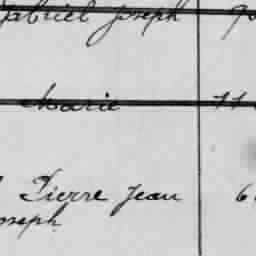 Gabriel Joseph
Marie 77
Pierre Jean 6
Joseph